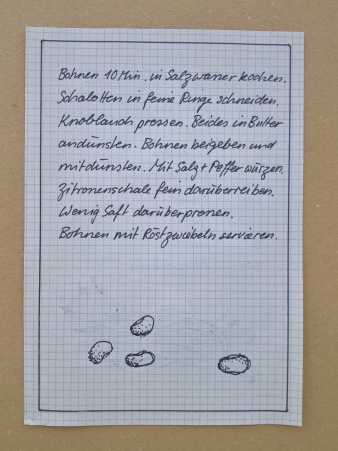 Bohnen 10 Min. in Salzwasser kochen.
Schalotten in feine Ringe schneiden.
Knoblauch pressen. Beides in Butter
andünsten. Bohnen beigeben und
mitdünsten. Mit Salz + Pfeffer würzen.
Zitronenschale fein darüberreiben.
Wenig Saft darüberpressen.
Bohnen mit Röstzwiebeln servieren.